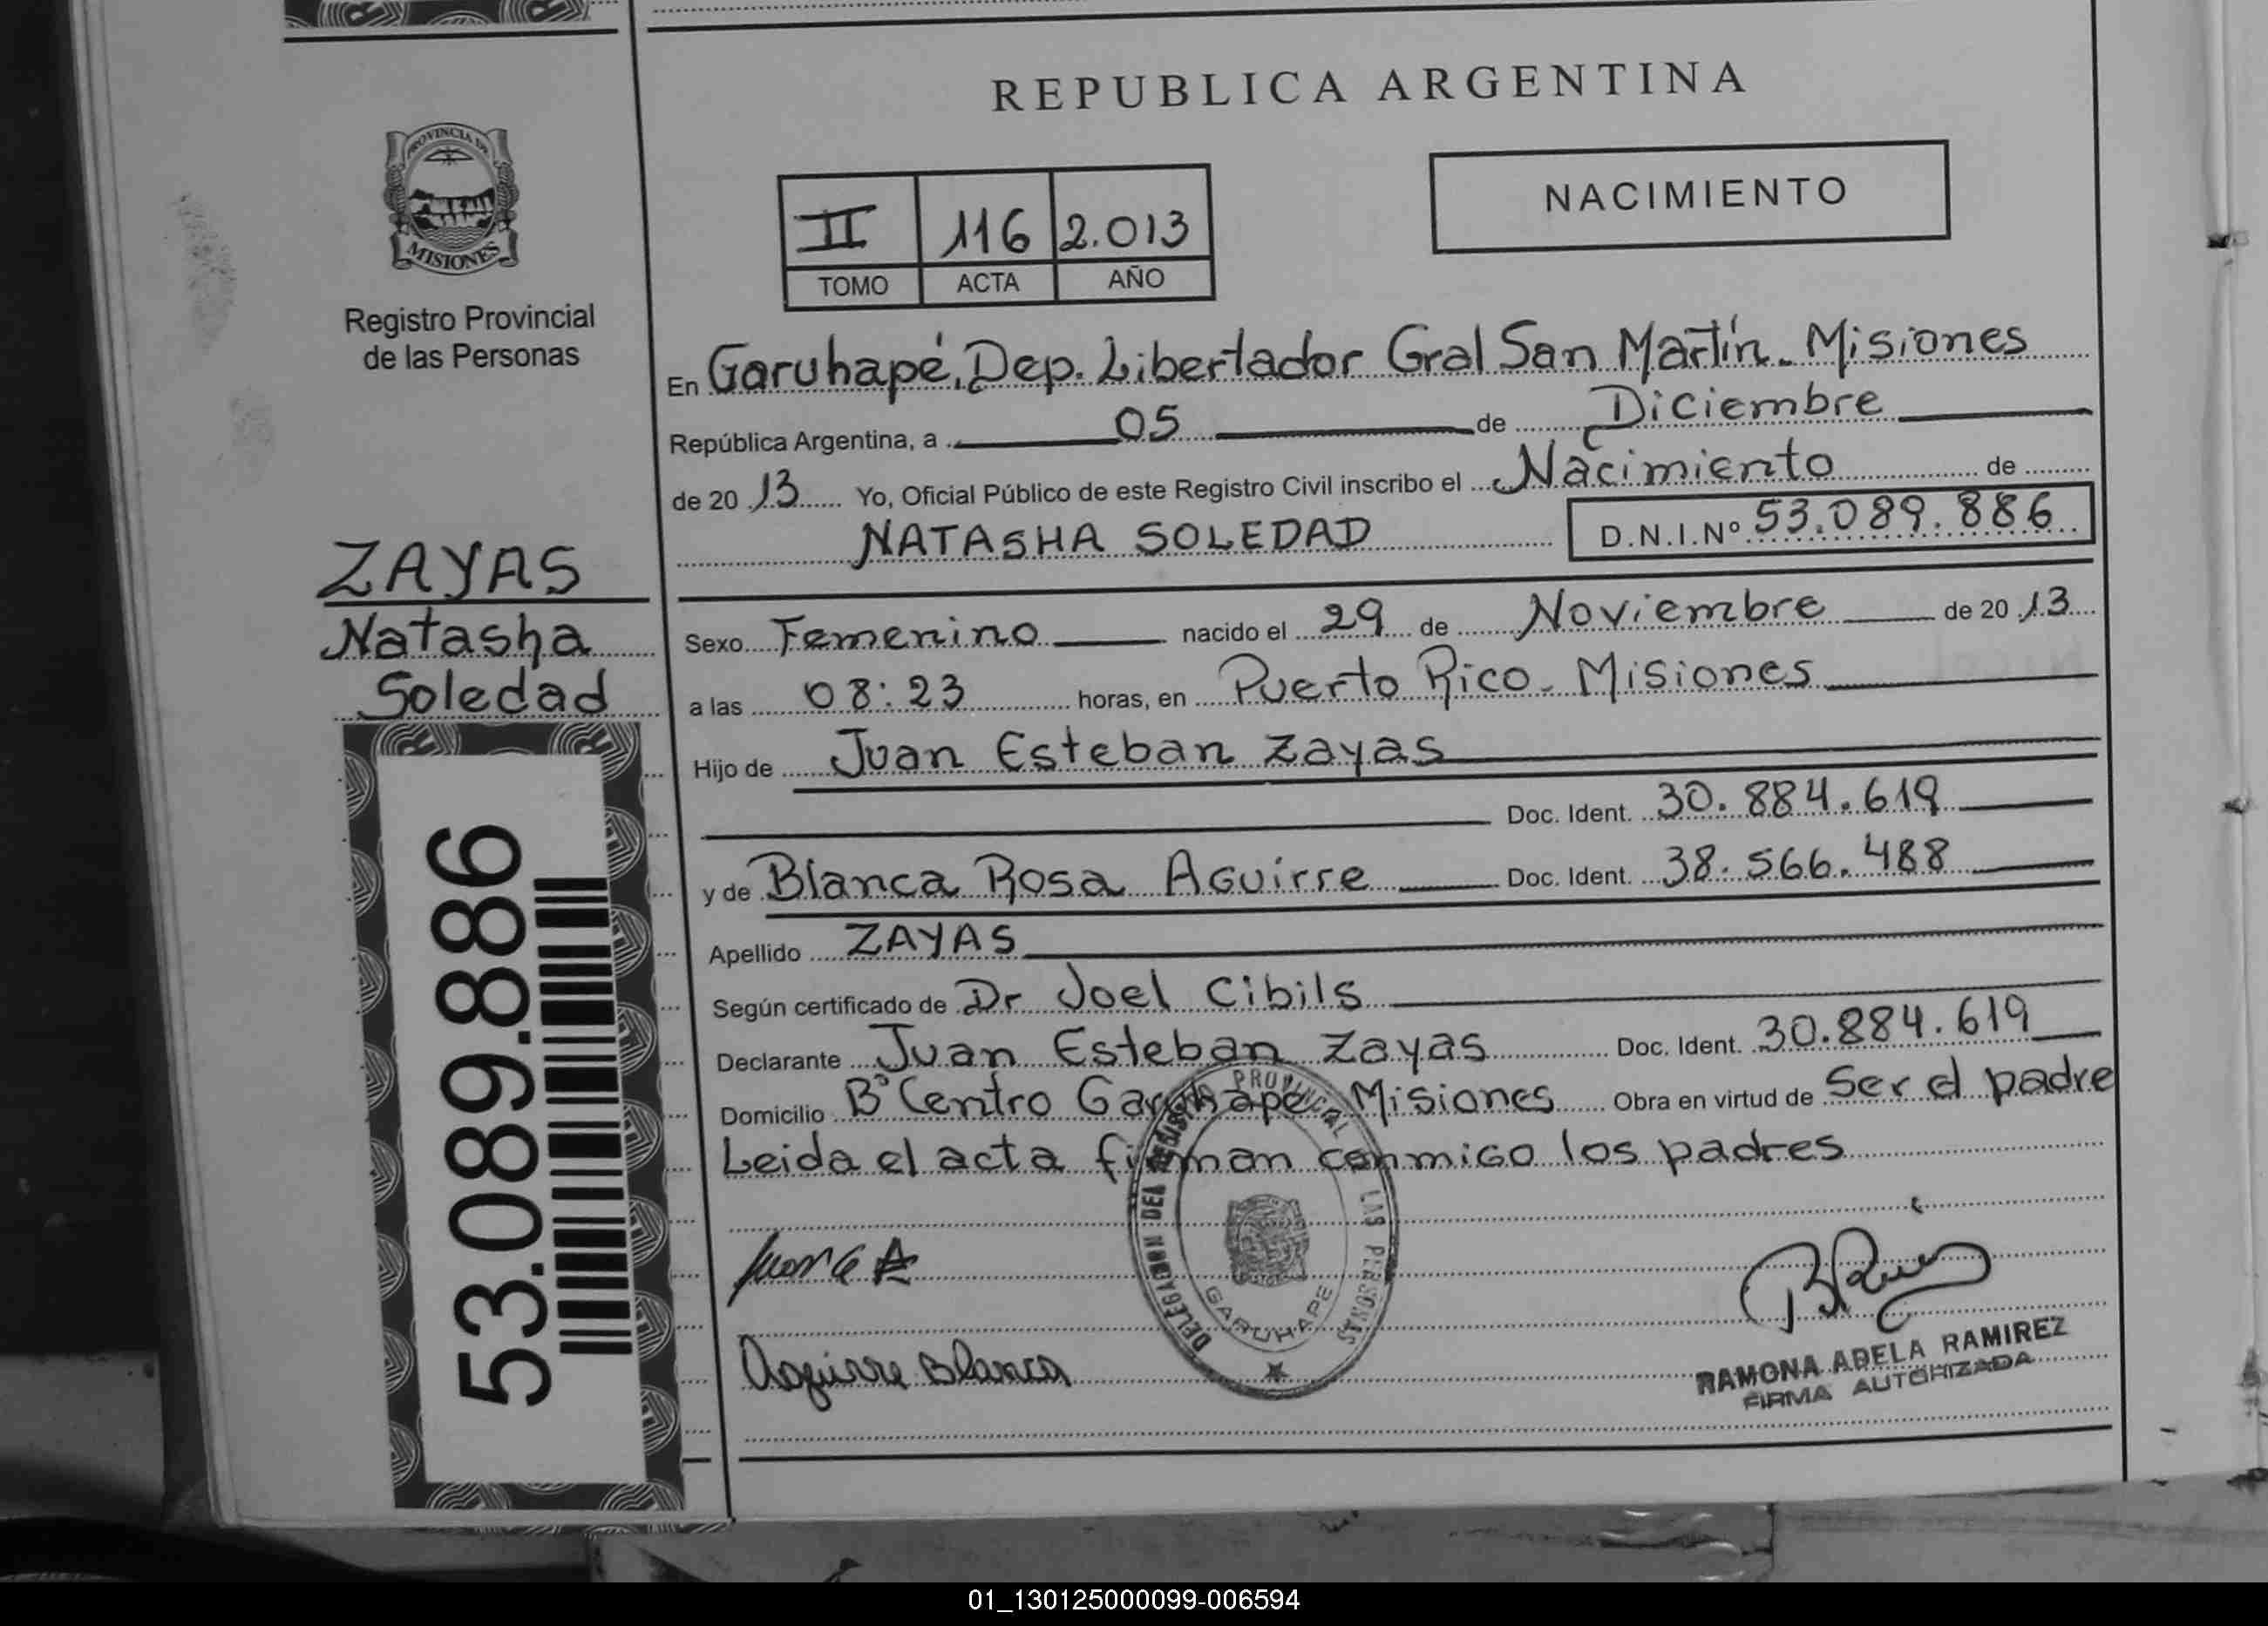 REPUBLICA ARGENTINA
PROVINCIA DE
MISIONES
Registro Provincial
de las Personas
NACIMIENTO
II 116 2.013
TOMO ACTA AÑO
En Garuhapé, Dep. Libertador Gral San Martín. Misiones
República Argentina, a 05 de Diciembre
de 20 13 Yo, Oficial Público de este Registro Civil inscribo el Nacimiento de
NATASHA SOLEDAD D.N.I.Nº 53.089.886
ZAYAS
Natasha
Soledad
Sexo Femenino nacido el 29 de Noviembre de 20 13
a las 08:23 horas, en Puerto Rico - Misiones
Hijo de Juan Esteban Zayas
Doc. Ident. 30.884.619
y de Blanca Rosa Aguirre Doc. Ident. 38.566.488
Apellido ZAYAS
Según certificado de Dr Joel Cibils
Declarante Juan Esteban Zayas Doc. Ident. 30.884.619
Domicilio Bº Centro Garuhapé Misiones Obra en virtud de Ser el padre
Leida el acta firman conmigo los padres
53.089.886
DELEGACION DEL REGISTRO PROVINCIAL DE LAS PERSONAS
GARUHAPE
Aguirre Blanca
RAMONA ADELA RAMIREZ
FIRMA AUTORIZADA
01_130125000099-006594